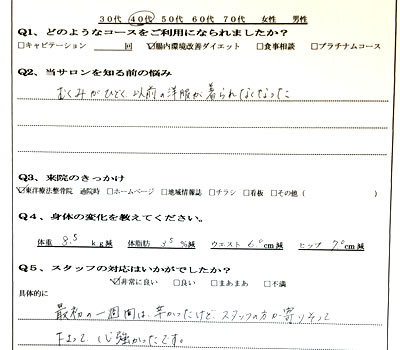 30代 40代 50代 60代 70代 女性 男性
Q1、どのようなコースをご利用になられましたか?
□キャビテーション 回 ☑腸内環境改善ダイエット □食事相談 □プラチナムコース
Q2、当サロンを知る前の悩み
むくみがひどく、以前の洋服が着られなくなった
Q3、来院のきっかけ
☑東洋療法整骨院 通院時 □ホームページ □地域情報誌 □チラシ □看板 □その他( )
Q4、身体の変化を教えてください。
体重 8.5 kg減 体脂肪 %減 ウエスト cm減 ヒップ cm減
Q5、スタッフの対応はいかがでしたか?
☑非常に良い □良い □まあまあ □不満
具体的に
最初の一週間は、辛かったけど、スタッフの方が寄りそって
下さって、心強かったです。